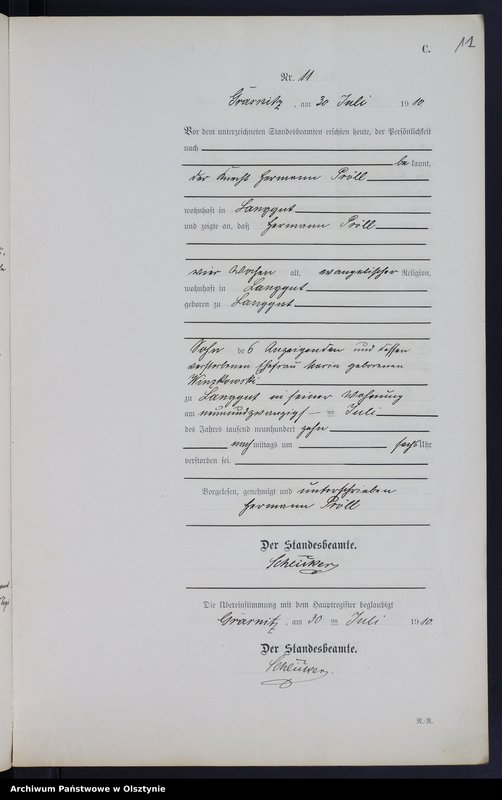 C. 11
Nr. 11
Gräsnitz, am 30 Juli 1910
Vor dem unterzeichneten Standesbeamten erschien heute, der Persönlichkeit
nach
be kannt,
der Knecht Hermann Pröll
wohnhaft in Langgut
und zeigte an, daß Hermann Pröll
vier Wochen alt, evangelischer Religion,
wohnhaft in Langgut
geboren zu Langgut
Sohn des Anzeigenden und dessen
verstorbenen Ehefrau Marie geborenen
zu Langgut in seiner Wohnung
am neunundzwanzigsten Juli
des Jahres tausend neunhundert zehn
nach mittags um sechs Uhr
verstorben sei.
Vorgelesen, genehmigt und unterschrieben
Hermann Pröll
Der Standesbeamte.
Die Übereinstimmung mit dem Hauptregister beglaubigt
Gräsnitz, am 30 ten Juli 1910
Der Standesbeamte.
N.-R.
Archiwum Państwowe w Olsztynie